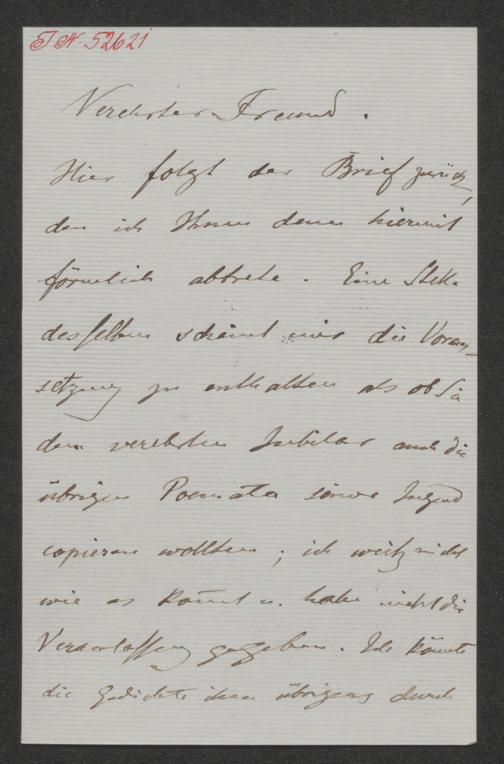 I N. 52621
Verehrter Freund.
Hier folgt der Brief zurück,
den ich Ihnen denn hiermit
förmlich abtrete. Eine Stelle
desselben scheint mir die Voraus-
setzung zu enthalten als ob Sie
dem verehrten Jubilar auch die
übrigen Poemata seiner Jugend
copieren wollten; ich weiß nicht
wie es kom̅t u. habe nicht die
Veranlassung gegeben. Ich könnte
die Gedichte ihm übrigens durch